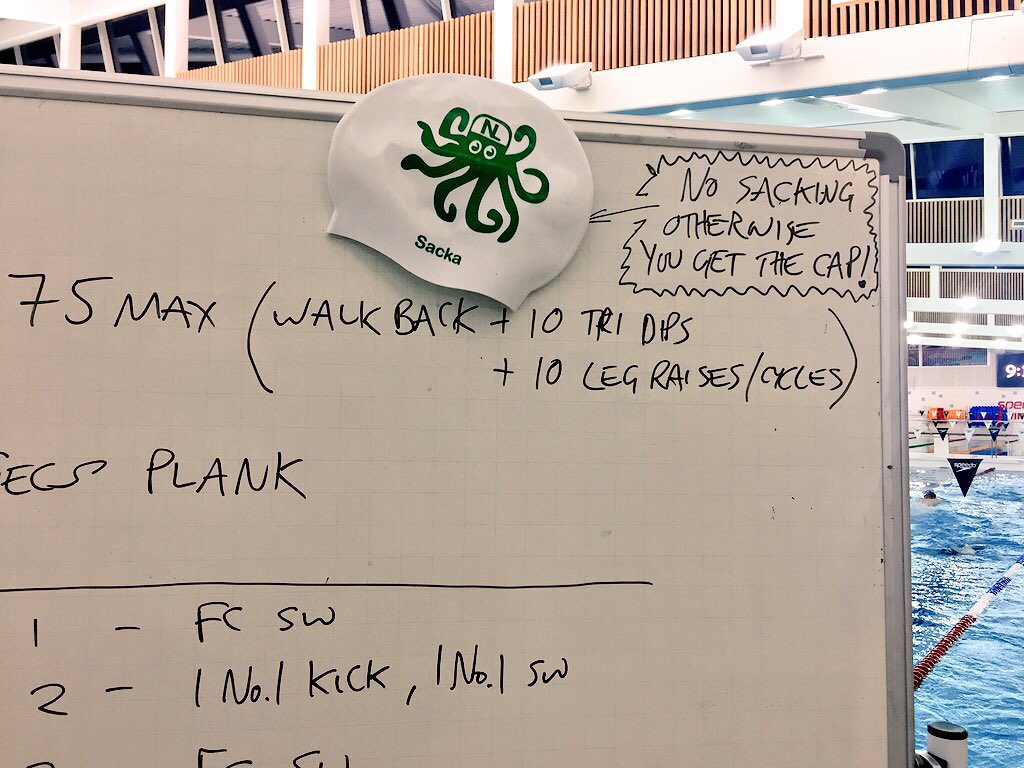 NL
Sacka
No SACKING
OTHERWISE
YOU GET THE CAP!
75 MAX (WALK BACK + 10 TRI DIPS
+ 10 LEG RAISES/CYCLES)
SECS PLANK
1 - FC SW
2 - 1 No.1 KICK, 1 No.1 SW
FC SW
speedo